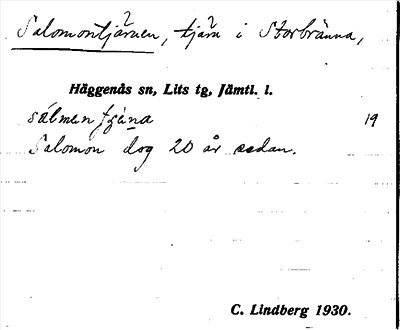 Salomontjärnen, tjärn i Storbränna,
Häggenås sn, Lits tg, Jämtl. l.
sálmen tjæ̀na 19
Salomon dog 20 år sedan.
C. Lindberg 1930.